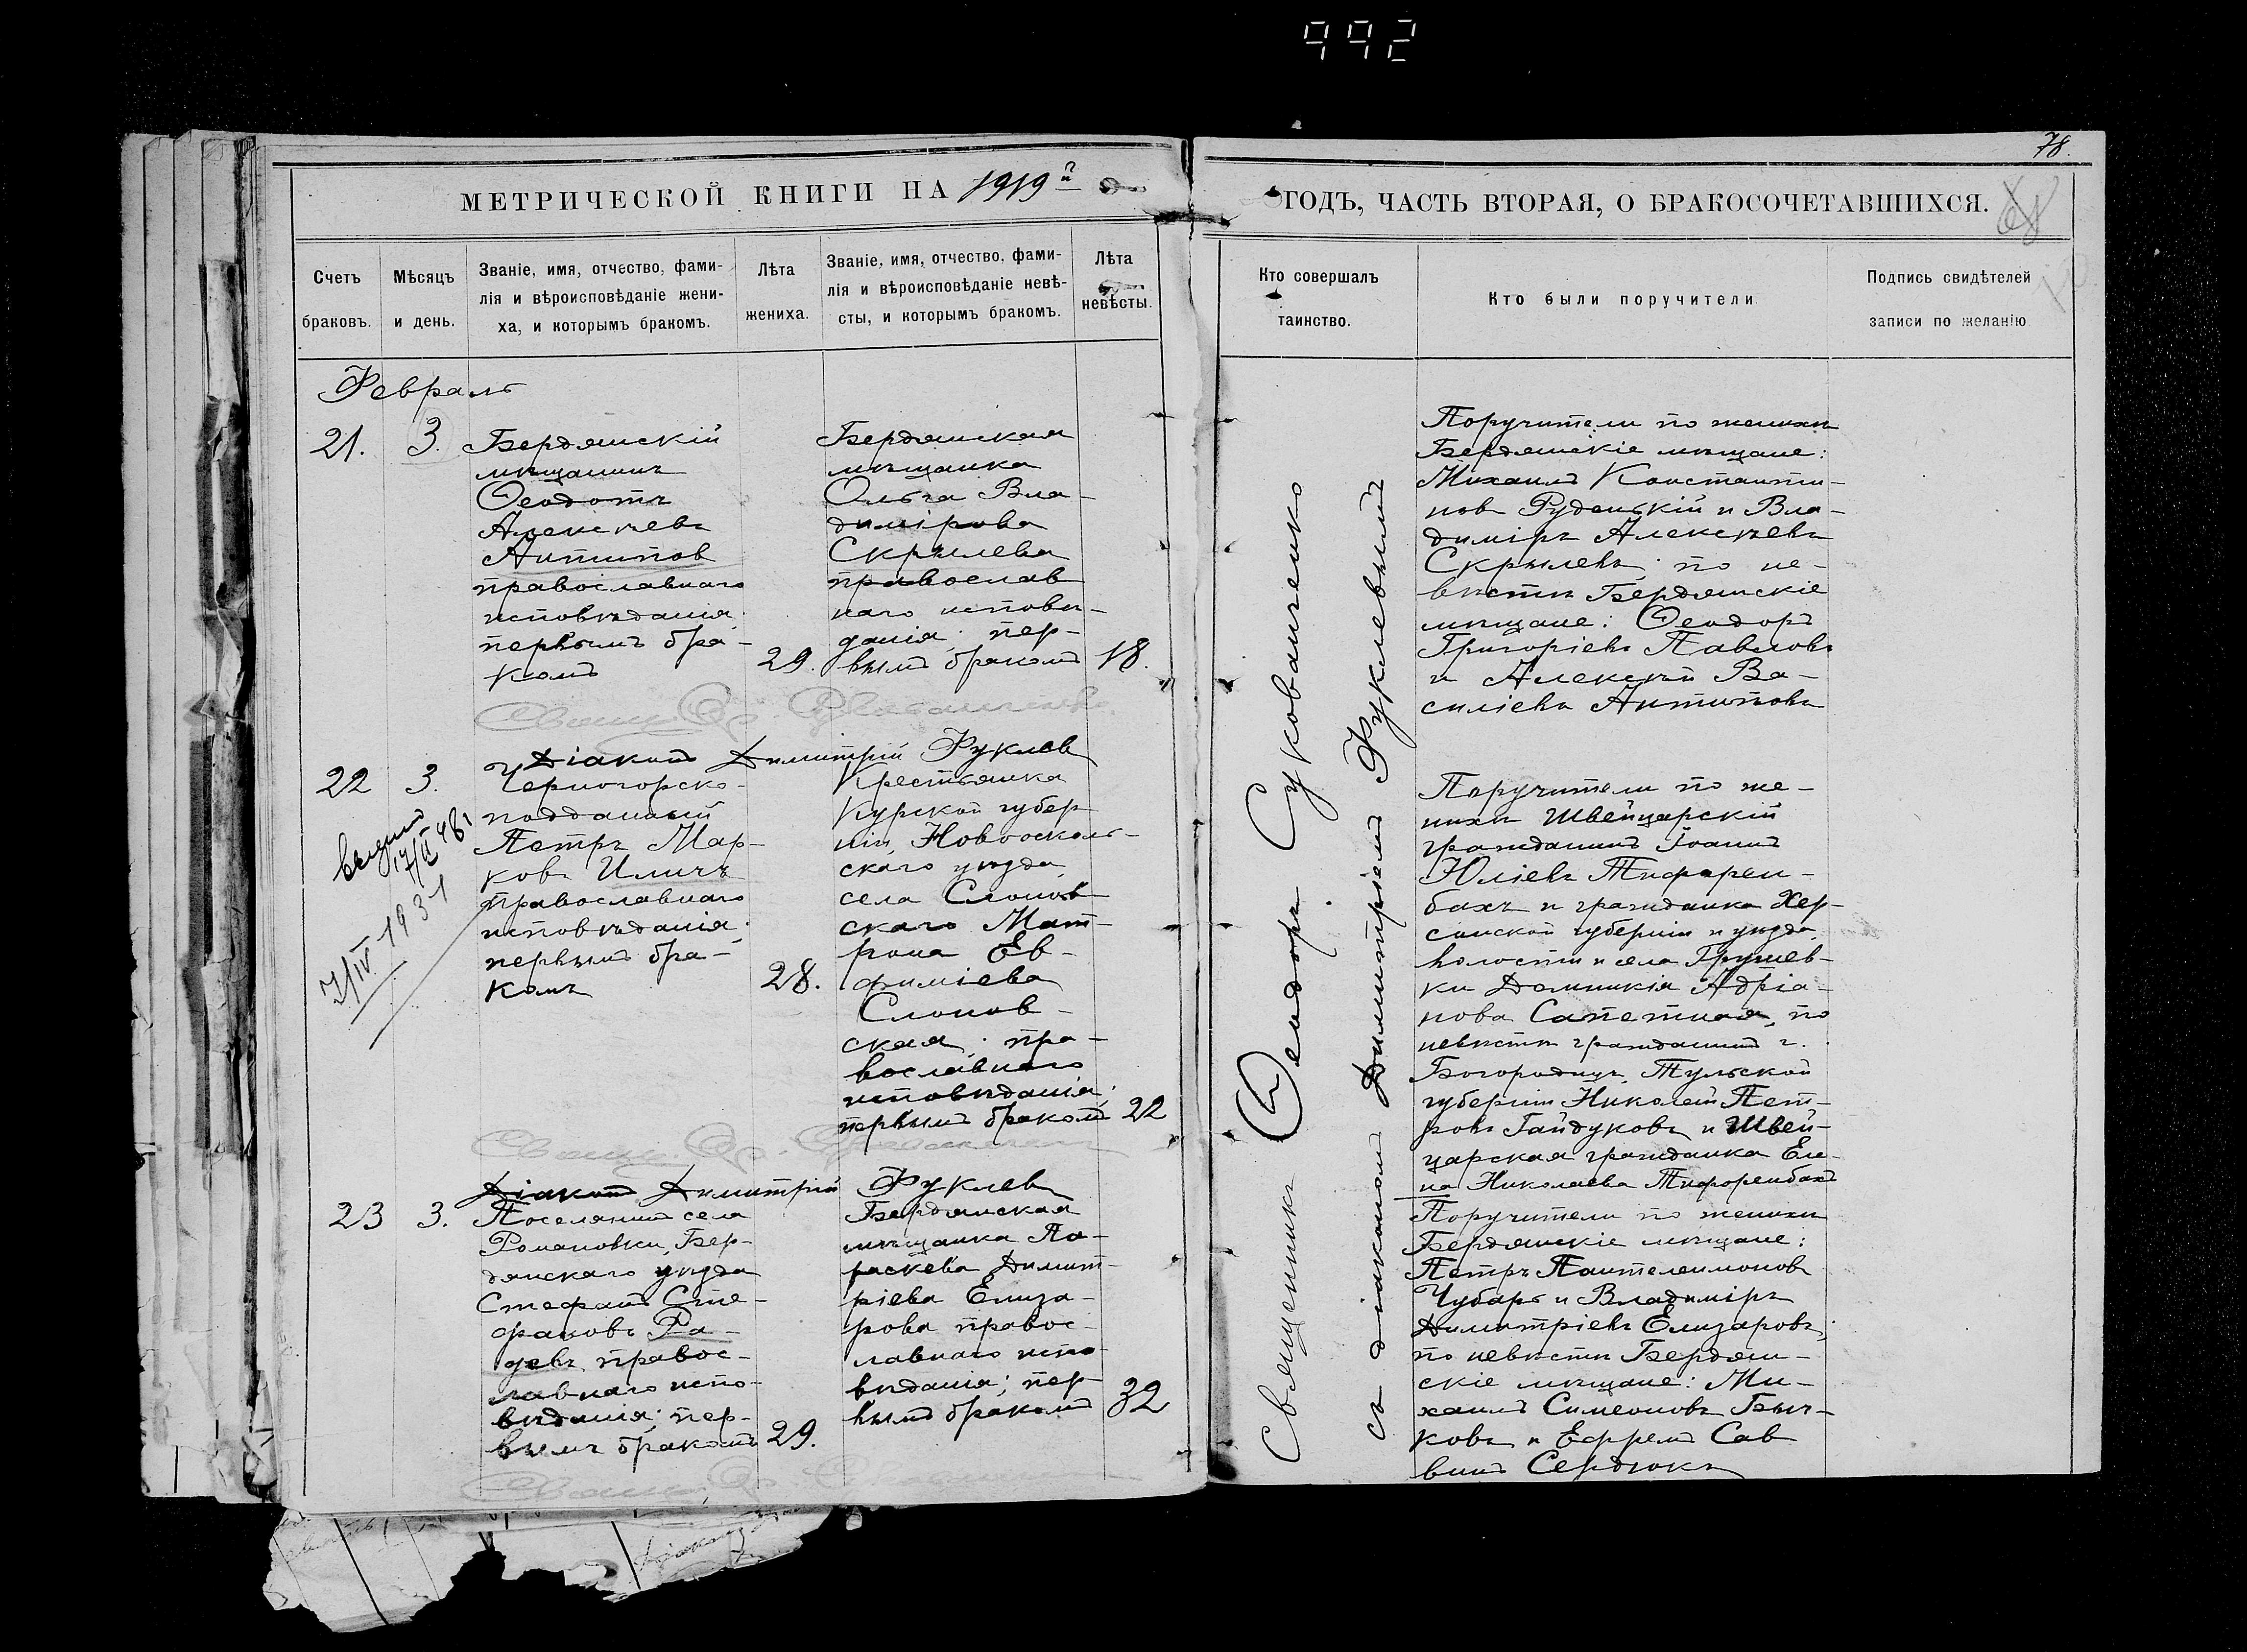 992
78.
МЕТРИЧЕСКОЙ КНИГИ НА 1919й
ГОДЪ, ЧАСТЬ ВТОРАЯ, О БРАКОСОЧЕТАВШИХСЯ.
68
Счетъ
браковъ.
Мѣсяцъ
и день.
Званіе, имя, отчество, фами-
лія и вѣроисповѣданіе жени-
ха, и которымъ бракомъ.
Лѣта
жениха.
Званіе, имя, отчество, фами-
лія и вѣроисповѣданіе невѣ-
сты, и которымъ бракомъ.
Лѣта
невѣсты.
Кто совершалъ
таинство.
Кто были поручители.
Подпись свидѣтелей
записи по желанію.
Февраль
21.
3.
Бердянскій
мѣщанинъ
Ѳеодотъ
Алексѣевъ
Антипов
православнаго
исповѣданія;
первымъ бра-
комъ
29.
Бердянская
мѣщанка
Ольга Вла-
димірова
Скрылева
православ
наго исповѣ-
данія; пер-
вымъ бракомъ
18.
Поручители по женихѣ
Бердянскіе мѣщане:
Михаилъ Константи-
новъ Руденькій и Вла-
диміръ Алексѣевъ
Скрылевъ; по не-
вѣстѣ Бердянскіе
мѣщане: Ѳеодоръ
Григоріевъ Павловъ
и Алексѣй Ва-
силіевъ Антиповъ
Діаконъ Димитрій Руклев
22
3.
Черногорско-
подданный
Петръ Мар-
ковъ Иличъ
православнаго
исповѣданія;
первымъ бра-
комъ
28.
Крестьянка
Курской губер-
ніи, Новоосколь-
скаго уѣзда,
села Слонов-
скаго Мат-
рона Ев-
фиміева
Слонов-
ская; пра-
вославнаго
исповѣданія;
первымъ бракомъ
22
7/IV 1931
Поручители по же-
нихѣ Швейцарскій
гражданинъ Іоаннъ
Юліевъ Тифорен-
бахъ и гражданка Хер-
сонской губерніи и уѣзда,
волости и села Грушев-
ки Домникія Адріа-
нова Сапетная, по
невѣстѣ гражданинъ г.
Богородицъ, Тульской
губерніи Николай Пет-
ровъ Гайдуковъ и Швей-
царская гражданка Еле-
на Николаева Тифоренбахъ
Діаконъ Димитрій Руклевъ
23
3.
Поселянинъ села
Романовки, Бер-
дянскаго уѣзда
Стефанъ Сте-
фановъ Ра-
девъ, правос-
лавнаго испо-
вѣданія; пер-
вымъ бракомъ
29.
Бердянская
мѣщанка Па-
раскева Димит-
ріева Елиза-
рова правос-
лавнаго испо-
вѣданія; пер-
вымъ бракомъ
32
Поручители по женихѣ
Бердянскіе мѣщане:
Петръ Пантелеимоновъ
Чубарь и Владиміръ
Димитріевъ Елизаровъ;
по невѣстѣ Бердян-
скіе мѣщане: Ми-
хаилъ Симеоновъ Быч-
ковъ и Ефремъ Сав
винъ Сердюкъ
Священникъ Ѳеодоръ Сукованченко
съ діакономъ Димитріемъ Руклевымъ